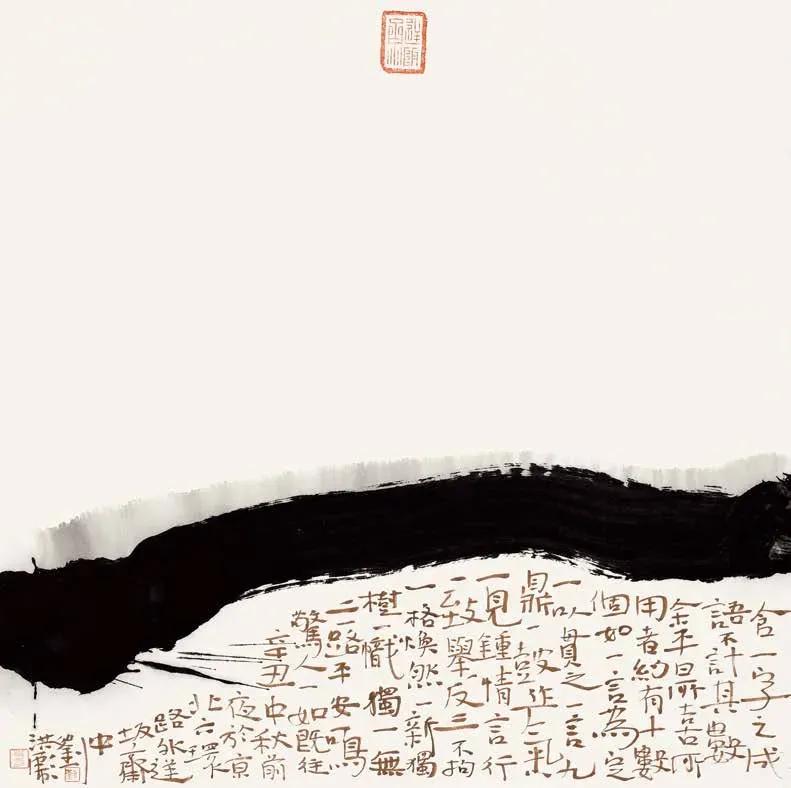 含一字之成
語不計其數
余平日所喜所
用者約有十數
個如一言為定
一以貫之一言九
鼎一鼓作气
一見鍾情言行
一致舉一反三不拘
一格煥然一新獨
樹一幟獨一無
二一路平安一鳴
驚人一如既往
辛丑中秋前
夜於京
北六環
路外逆
坂齋
中
劉
洪彪